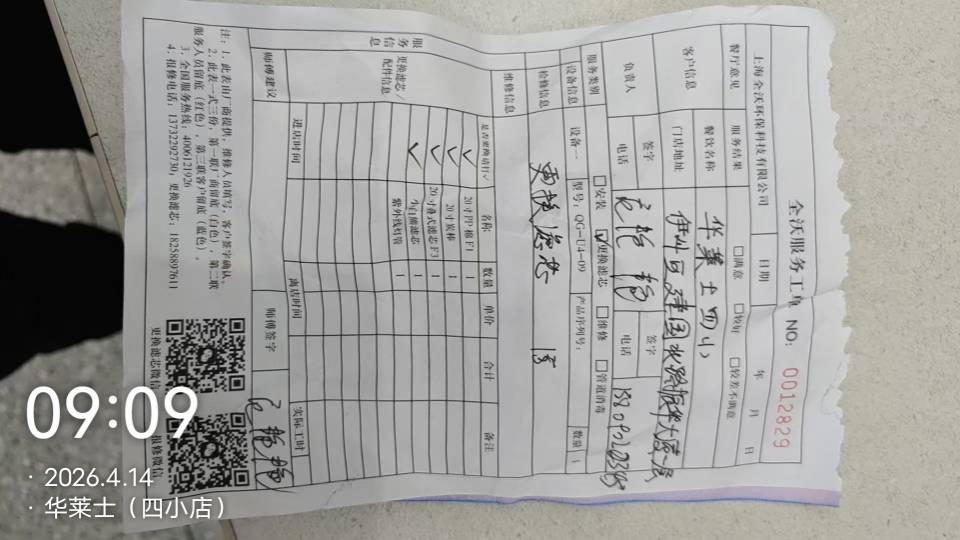 全沃服务工单 NO: 0012829
上海全沃环保科技有限公司 日期 年 月 日
餐厅意见 服务结果 □满意 □较好 □较差不满意
客户信息 餐饮名称 华莱士四小
门店地址 伊州区建国北路振华大厦一层
负责人 签字 签字
电话 电话
服务类别 □安装 ☑更换滤芯 □维修 □管道消毒
设备信息 设备一 型号: QG-U4-09 产品序列号: 数量 1
检修信息 更换滤芯
维修信息
服务信息 更换滤芯/配件信息 是否更换请打✓ 名称 数量 单价 合计 备注
✓ 20寸PP棉F1 1
✓ 20寸炭棒 1
✓ 20寸叠式滤芯F3 1
✓ 小白麵滤芯 1
紫外线灯管 1
师傅建议 进店时间 离店时间 实际工时
师傅签字
注: 1、此表由厂商提供, 维修人员填写, 客户签字确认。
2、此表一式三份, 第一联厂商留底（白色）, 第二联服务人员留底（红色）, 第三联客户留底（蓝色）。
3、全国服务热线: 4006121926
4、报修电话: 13732292730; 更换滤芯: 18258897611
更换滤芯微信 报修微信
09:09
· 2026.4.14
· 华莱士（四小店）